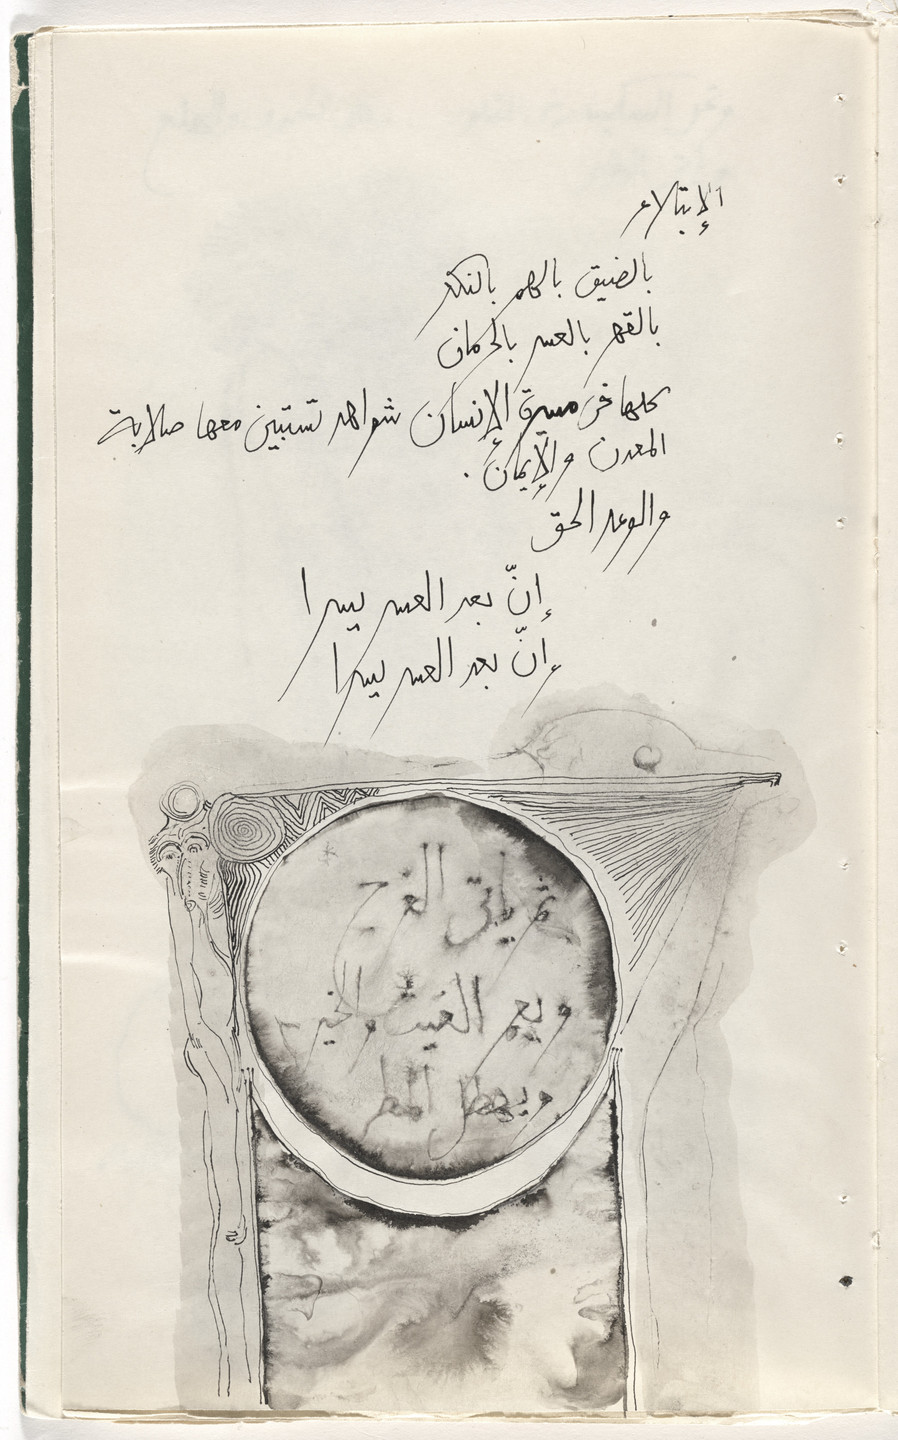 الإبتلاء
بالضيق بالهم بالنكد
بالقهر بالعسر بالحرمان
كلها في مسيرة الإنسان شواهد تستبين معها صلابة
المعدن والإيمان.
والوعد الحق
إنّ بعد العسر يسرا
إنّ بعد العسر يسرا
ثم يأتي الفرج
ويعم الغيث والخير
ويهطل المطر